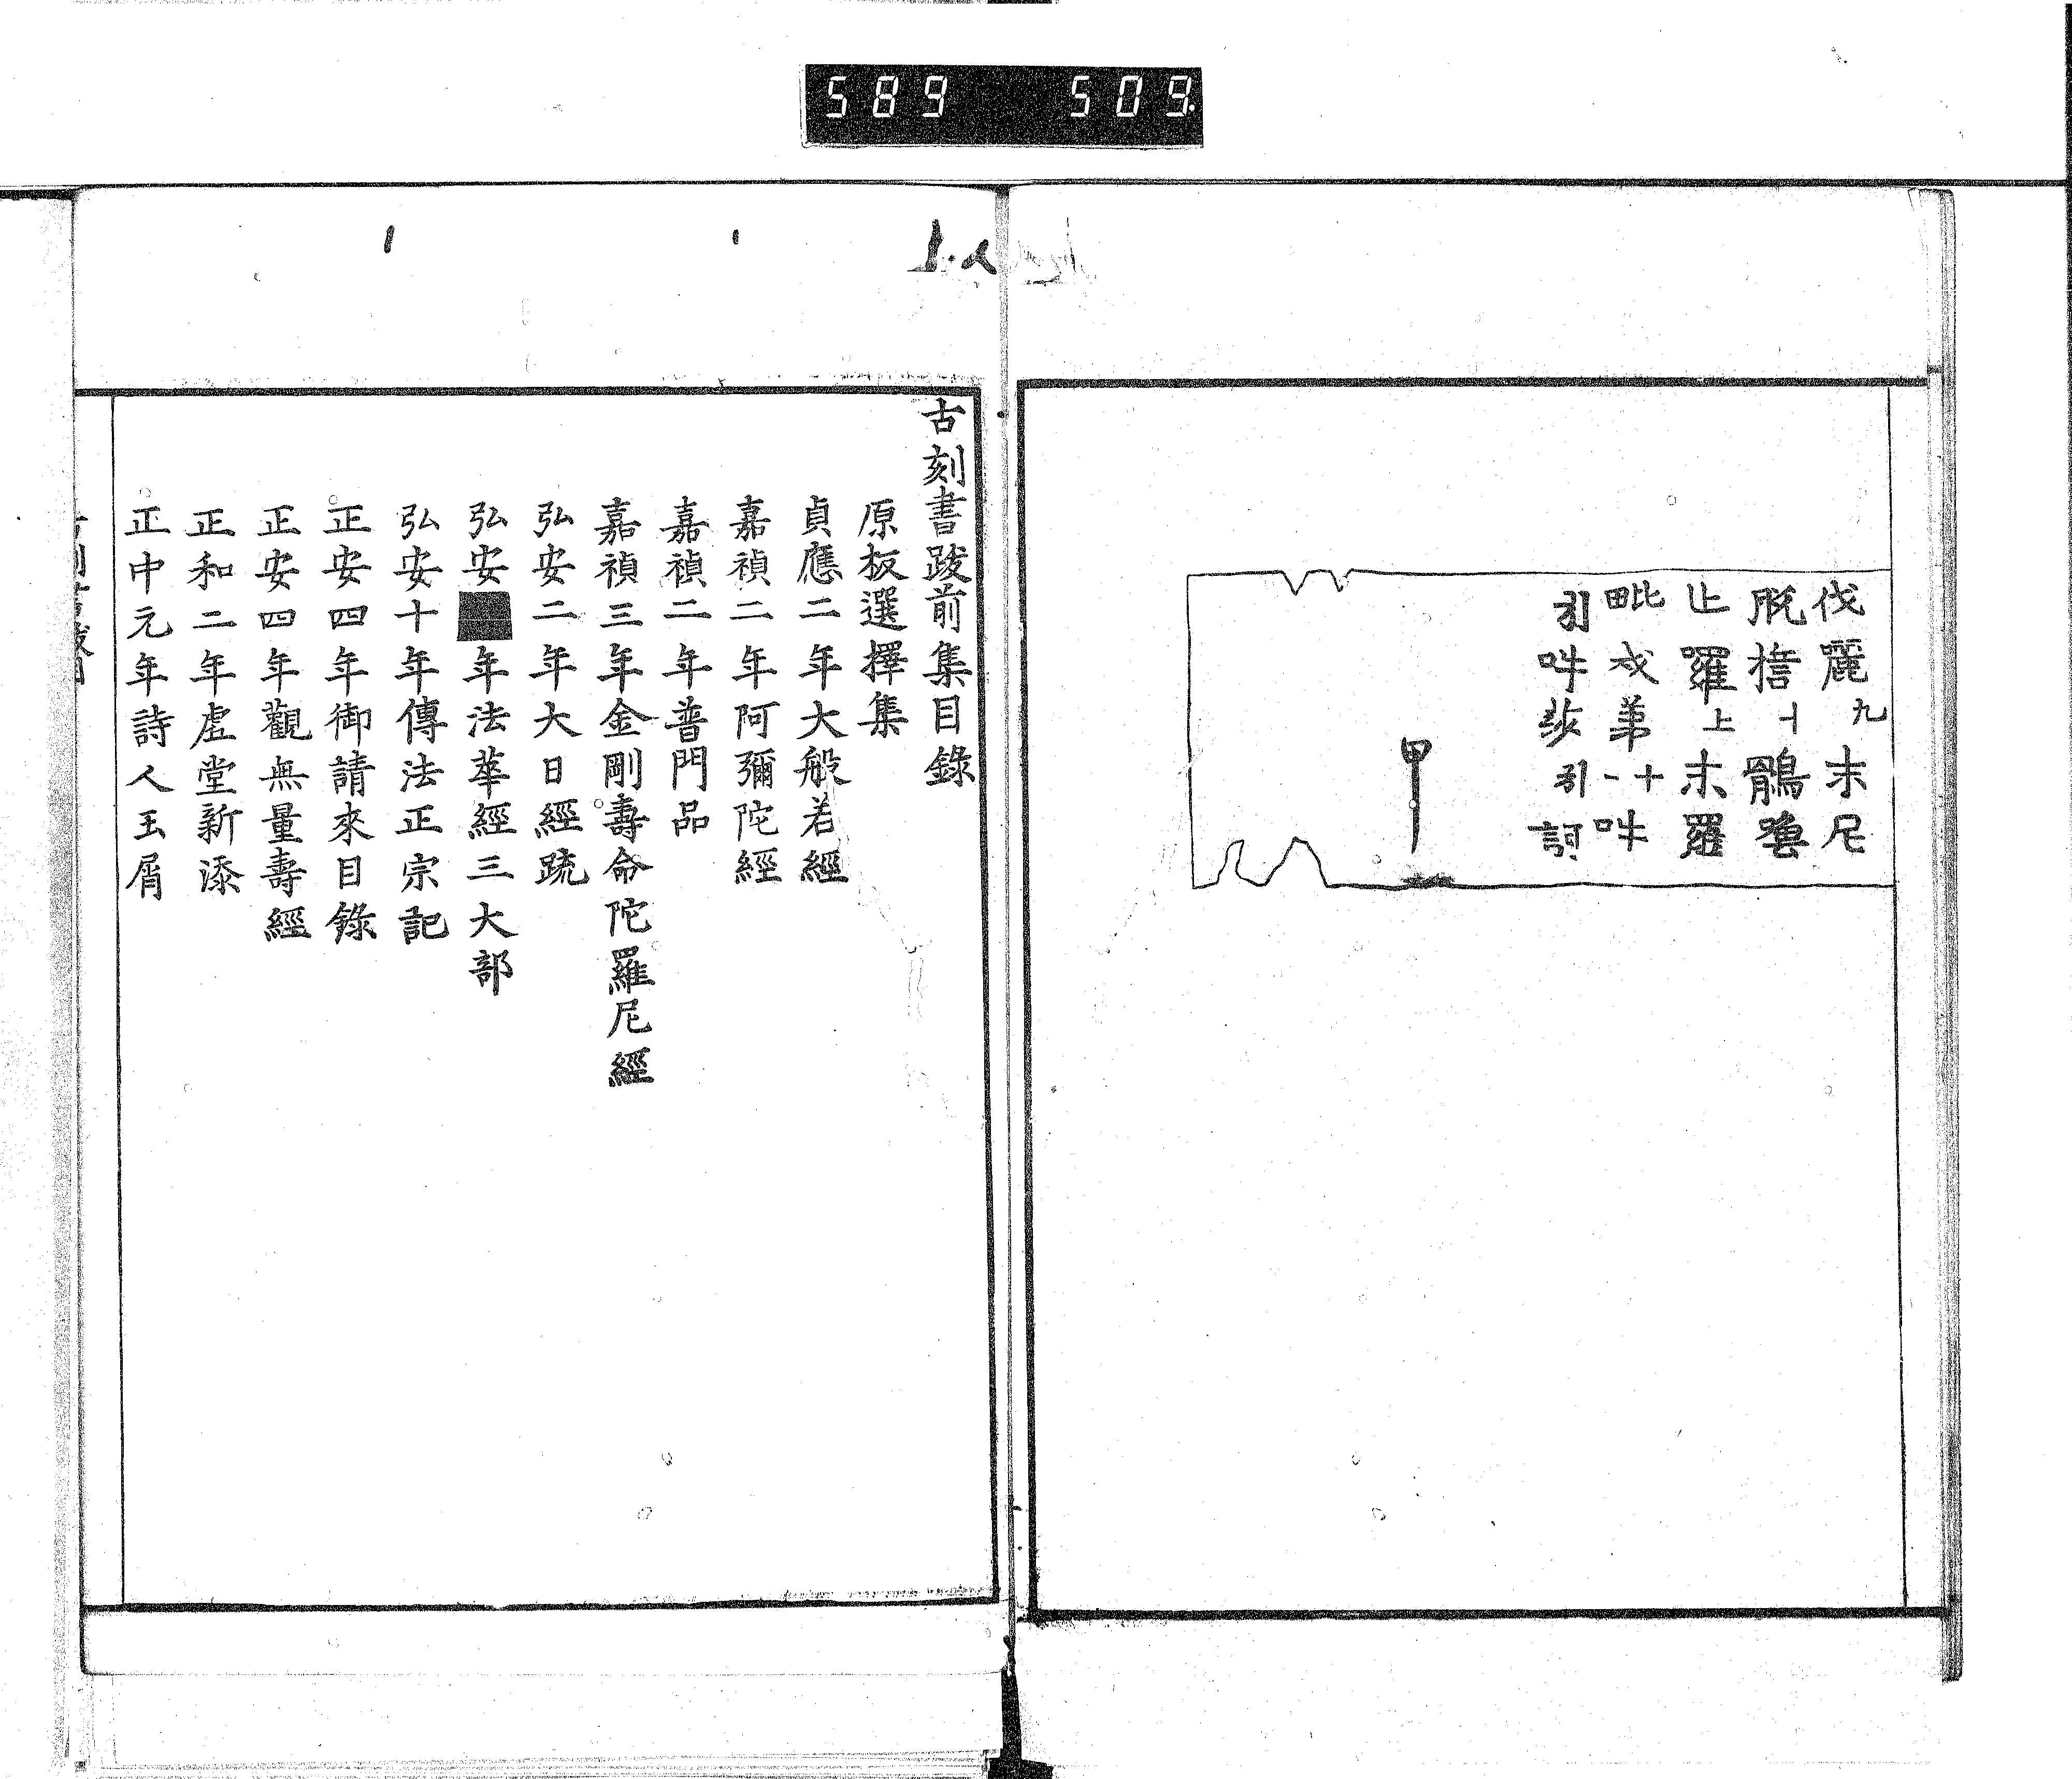 589 509
伐麗九末尼
止羅上末羅
毗
甲
古刻書跋前集目錄
原板選擇集
貞應二年大般若經
嘉禎二年阿彌陀經
嘉禎二年普門品
嘉禎三年金剛壽命陀羅尼經
弘安二年大日經疏
弘安年法華經三大部
弘安十年傳法正宗記
正安四年御請來目錄
正安四年觀無量壽經
正和二年虛堂新添
正中元年詩人玉屑